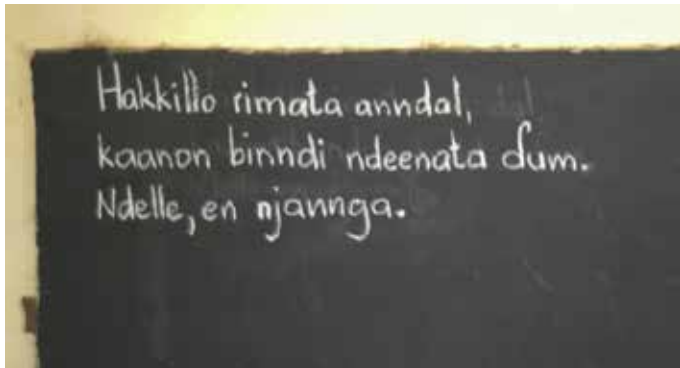 Hakkillo rimata anndal,
kaanon binndi ndeenata ɗum.
Ndelle, en njannga.